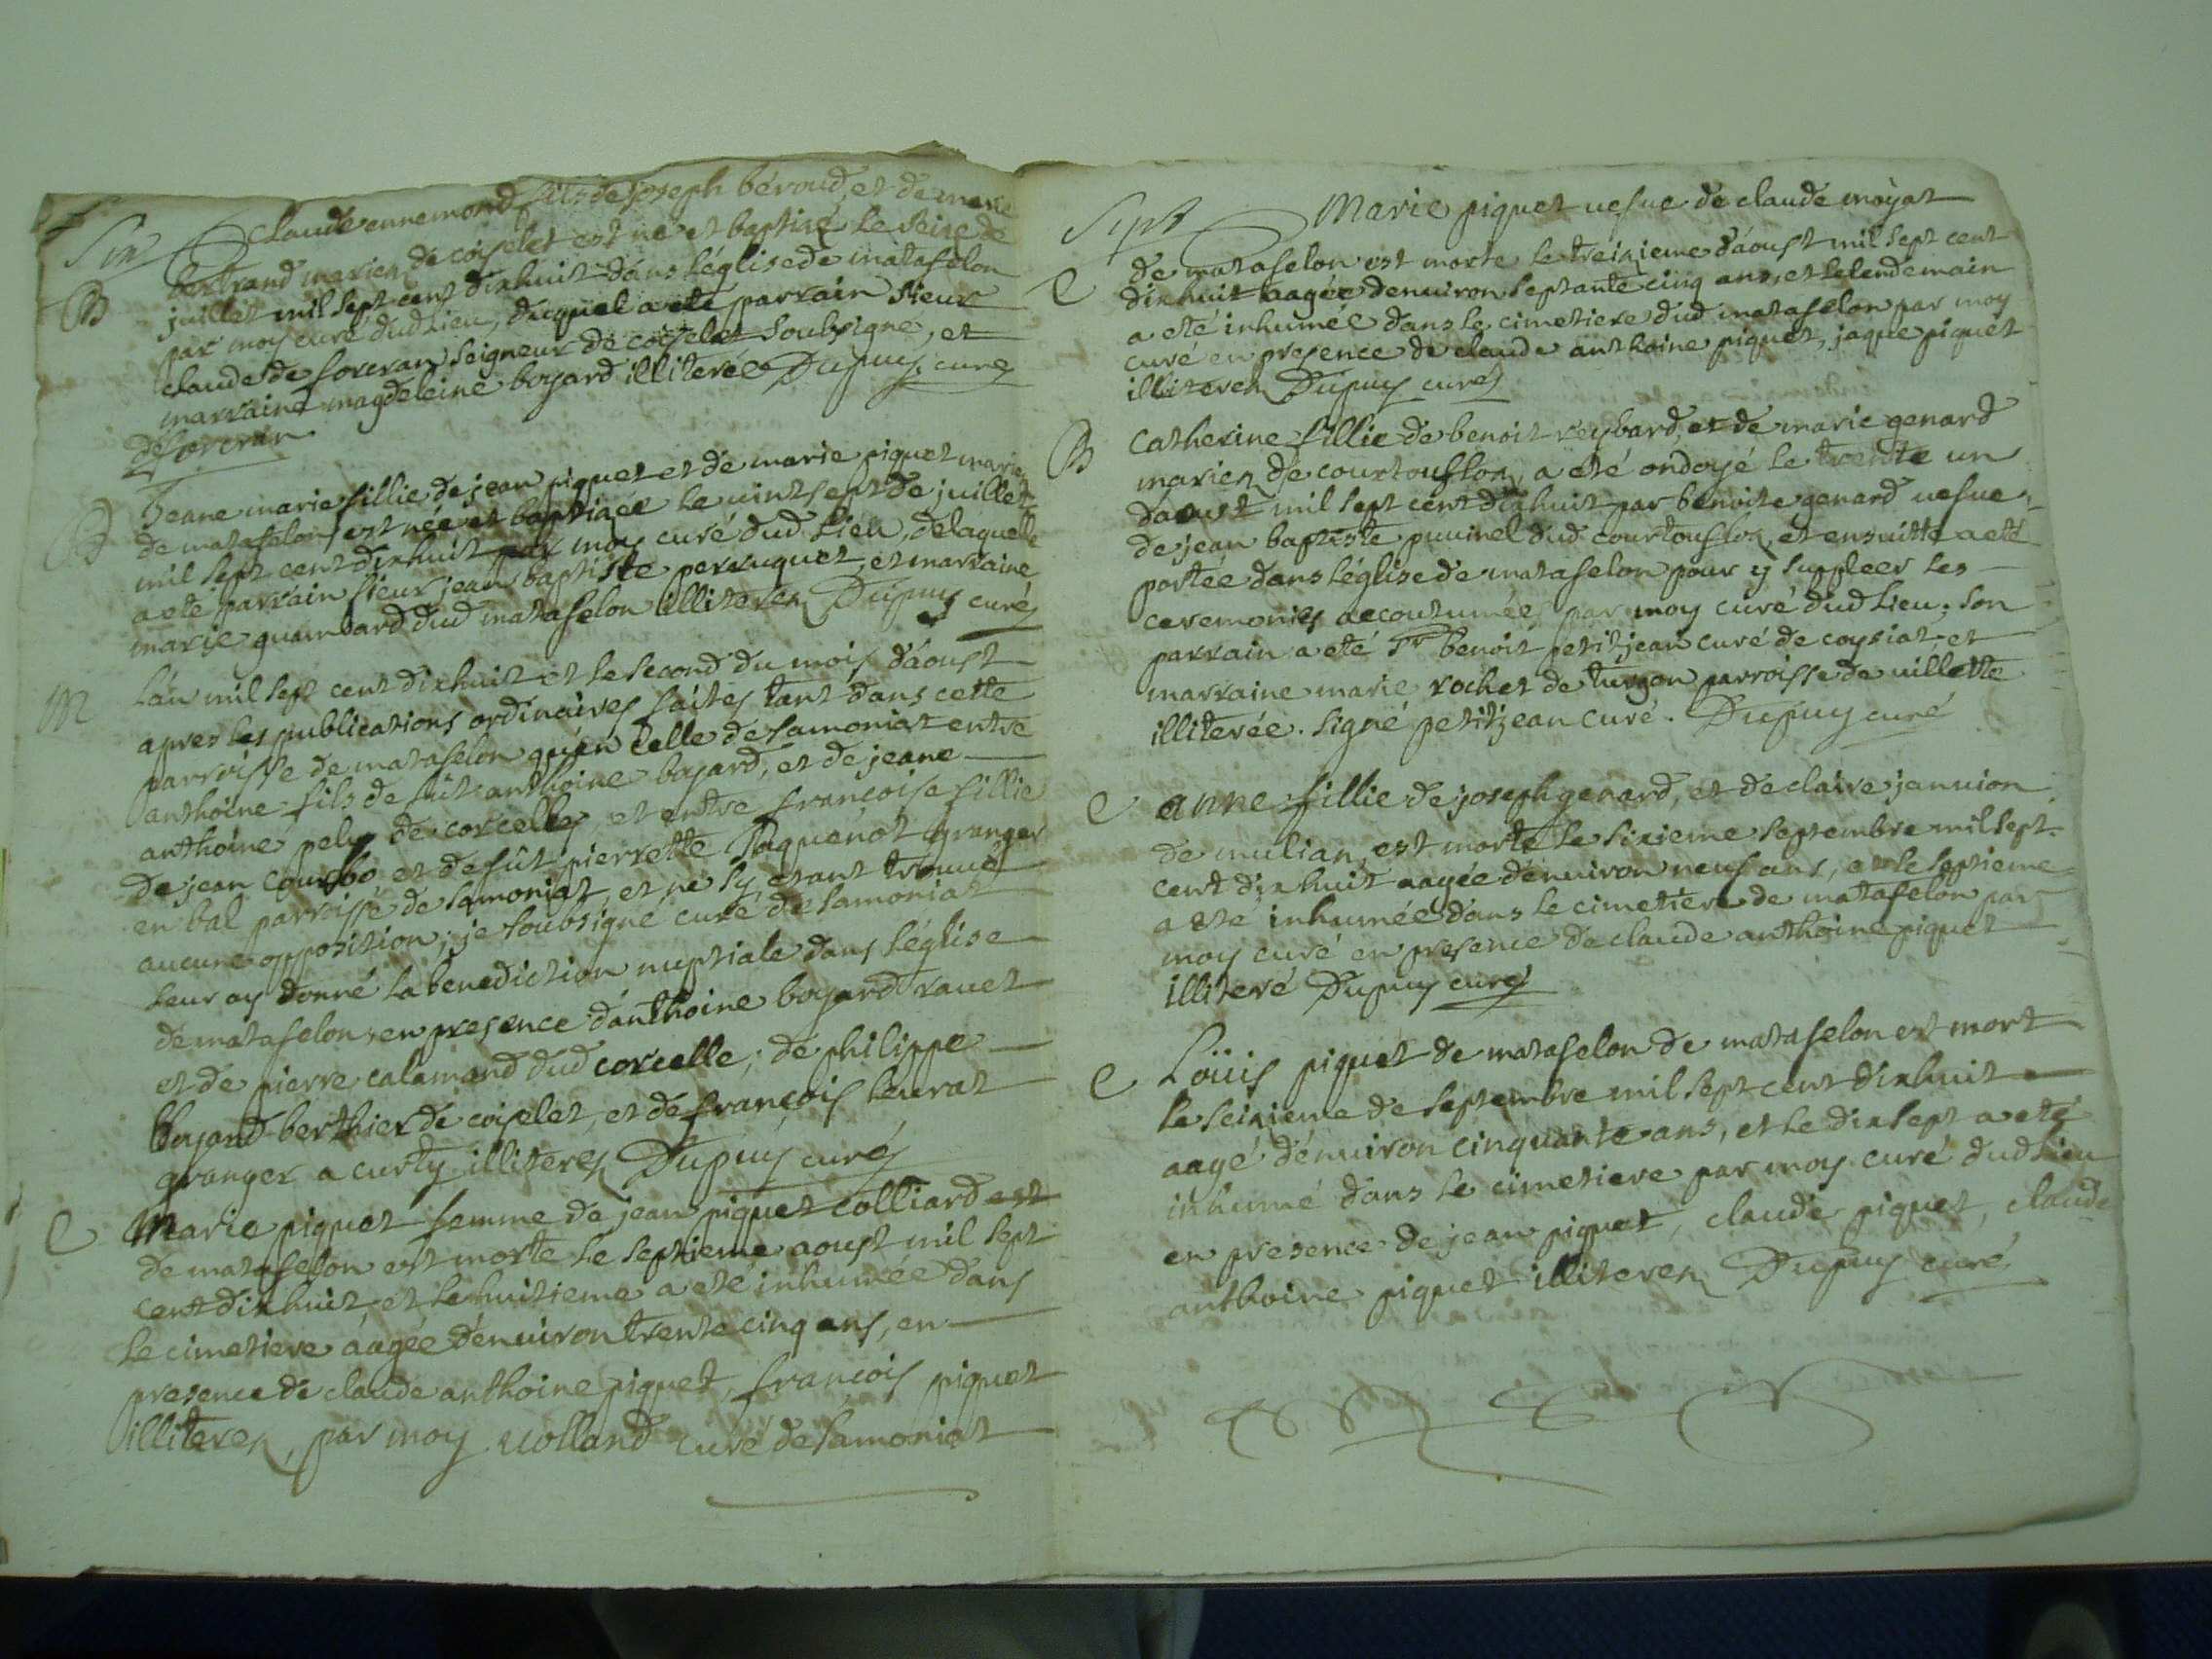 Six
Claude ennemond fils de joseph béroud, et de marie
B
bertrand mariez de coiselet est né et baptizé le seize de
juillet mil sept cent dixhuit dans léglise de matafelon
par moy curé dud lieu, duquel a eté parrain sieur
claude de forcran seigneur de coiselet soubsigné, et
marraine magdeleine bojard illiterée Dupuy curé
De forcran
B
Jeane marie fillie de jean piquet et de marie piquet mariez
de matafelon est née et baptizée le vint sept de juillet
mil sept cent dixhuit par moy curé dud lieu, delaquelle
a eté parrain sieur jean baptiste perruquet, et marraine
marie guambard dud matafelon illiterez Dupuy curé
M
L'an mil sept cent dixhuit et le second du mois d'áoust
apres les publications ordinaires faites tant dans cette
parroisse de matafelon qu'en celle de samoniat entre
anthoine fils de fût anthoine bojard, et de jeane
anthoine pely de corcelles, et entre françoise fillie
de jean courbo et de fût pierrette Paquenot granger
en bal parroisse de samoniat, et ne sy etant trouué
aucune opposition; je soubsigné curé de samoniat
leur ay donné la benediction nuptiale dans léglise
de matafelon, en presence d'anthoine bojard ravet
et de pierre calamand dud corcelle; de philippe
bojard berthier de coiselet, et de françois leurat
granger a curty illiterez Dupuy curé
e
Marie piquet femme de jean piquet colliard est
de matafelon est morte le septieme aoust mil sept
cent dixhuit, et le huitieme a eté inhumée dans
le cimetiere áagée d'enuiron trente cinq ans, en
presence de claude anthoine piquet, françois piquet
illiterez, par moy uolland curé de samoniat
Sept
Marie piquet uefue de claude moyat
e
de matafelon est morte le treizieme d'áoust mil sept cent
dixhuit aagée denuiron septante cinq ans, et le lendemain
a eté inhumée dans le cimetiere dud matafelon par moy
curé en presence de claude anthoine piquet, jaque piquet
illiterez Dupuy curé
B
Catherine fillie de benoit reybard, et de marie genard
mariez de courtouflon, a eté ondoyé le trente un
daoust mil sept cent dixhuit par benoite genard uefue
de jean baptiste puuinel dud courtouflon, et ensuitte a eté
portée dans léglise de matafelon pour y suppleer les
ceremonies accoutumées par moy curé dud lieu; son
parrain a eté Sr benoit petitjean curé de coysiat, et
marraine marie rochet de turgon parroisse de uillette
illiterée. signé petitjean curé. Dupuy curé
e
anne fillie de joseph genard, et de claire januion
de mulian, est morte le sixieme septembre mil sept
cent dixhuit aagée d'enuiron neuf ans, et le septieme
a eté inhumée dans le cimetiere de matafelon par
moy curé en presence de claude anthoine piquet
illiteré Dupuy curé
e
Loüis piquet de matafelon de matafelon est mort
le seizieme de septembre mil sept cent dixhuit
aagé d'enuiron cinquante ans, et le dixsept a eté
inhumé dans le cimetiere par moy curé dud lieu
en presence de jean piquet, claude piquet, claude
anthoine piquet illiterez Dupuy curé